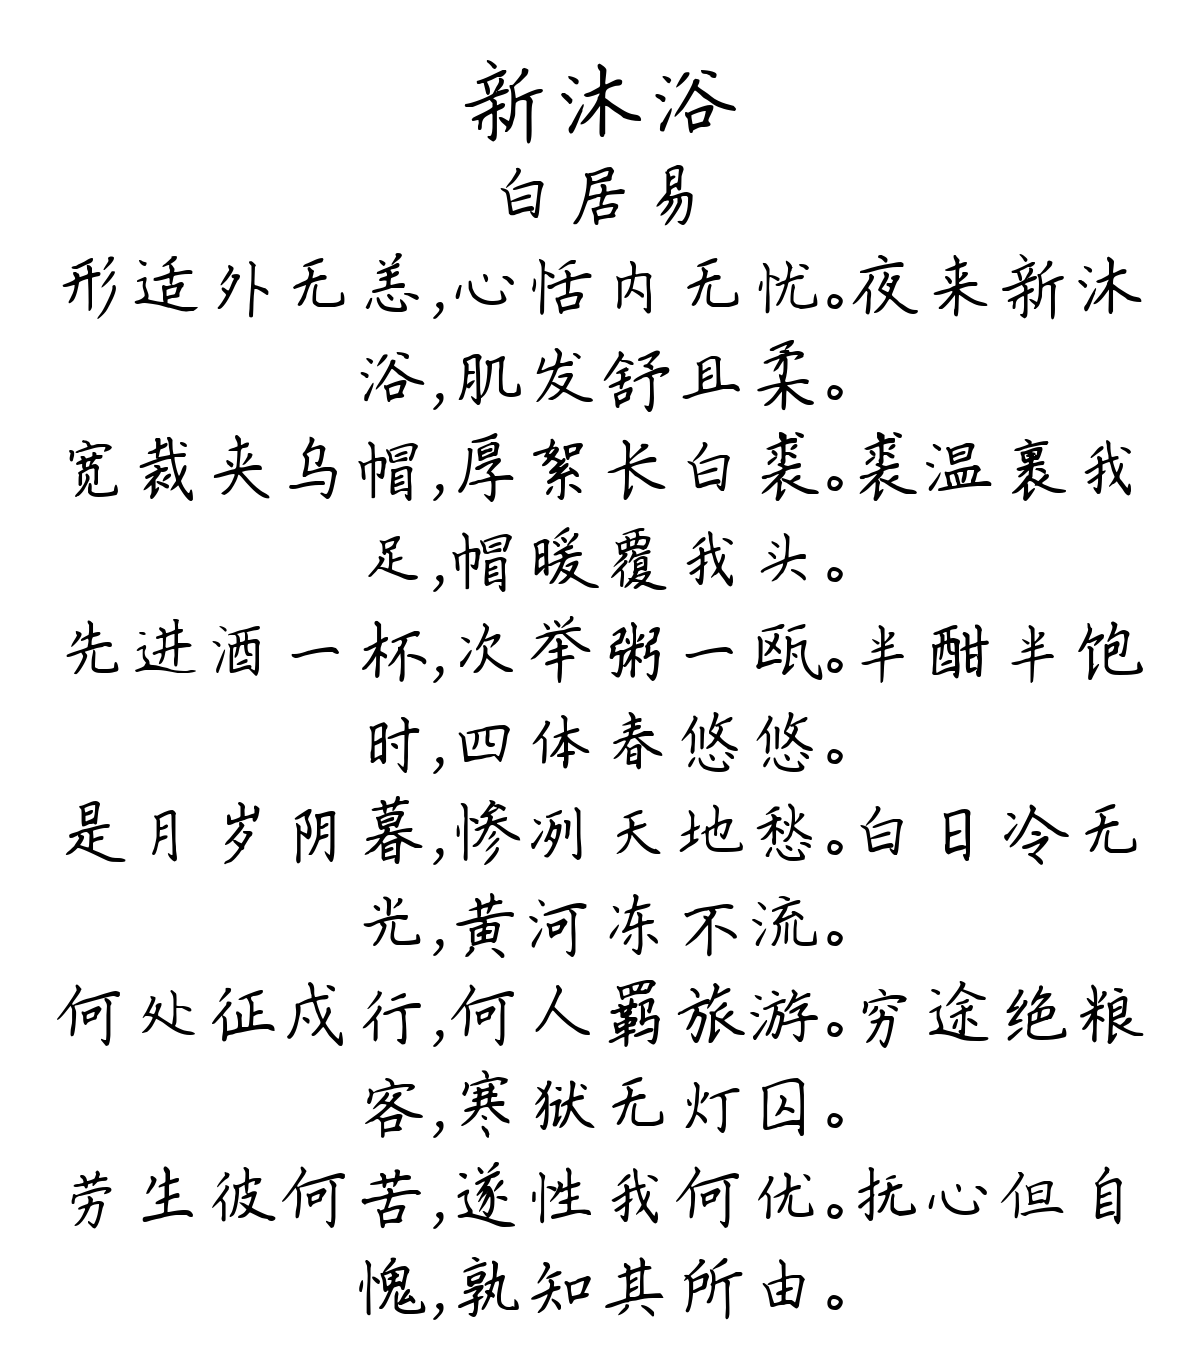 新沐浴
白居易
形适外无恙,心恬内无忧。夜来新沐
浴,肌发舒且柔。
宽裁夹乌帽,厚絮长白裘。裘温裹我
足,帽暖覆我头。
先进酒一杯,次举粥一瓯。半酣半饱
时,四体春悠悠。
是月岁阴暮,惨冽天地愁。白日冷无
光,黄河冻不流。
何处征戍行,何人羁旅游。穷途绝粮
客,寒狱无灯囚。
劳生彼何苦,遂性我何优。抚心但自
愧,孰知其所由。